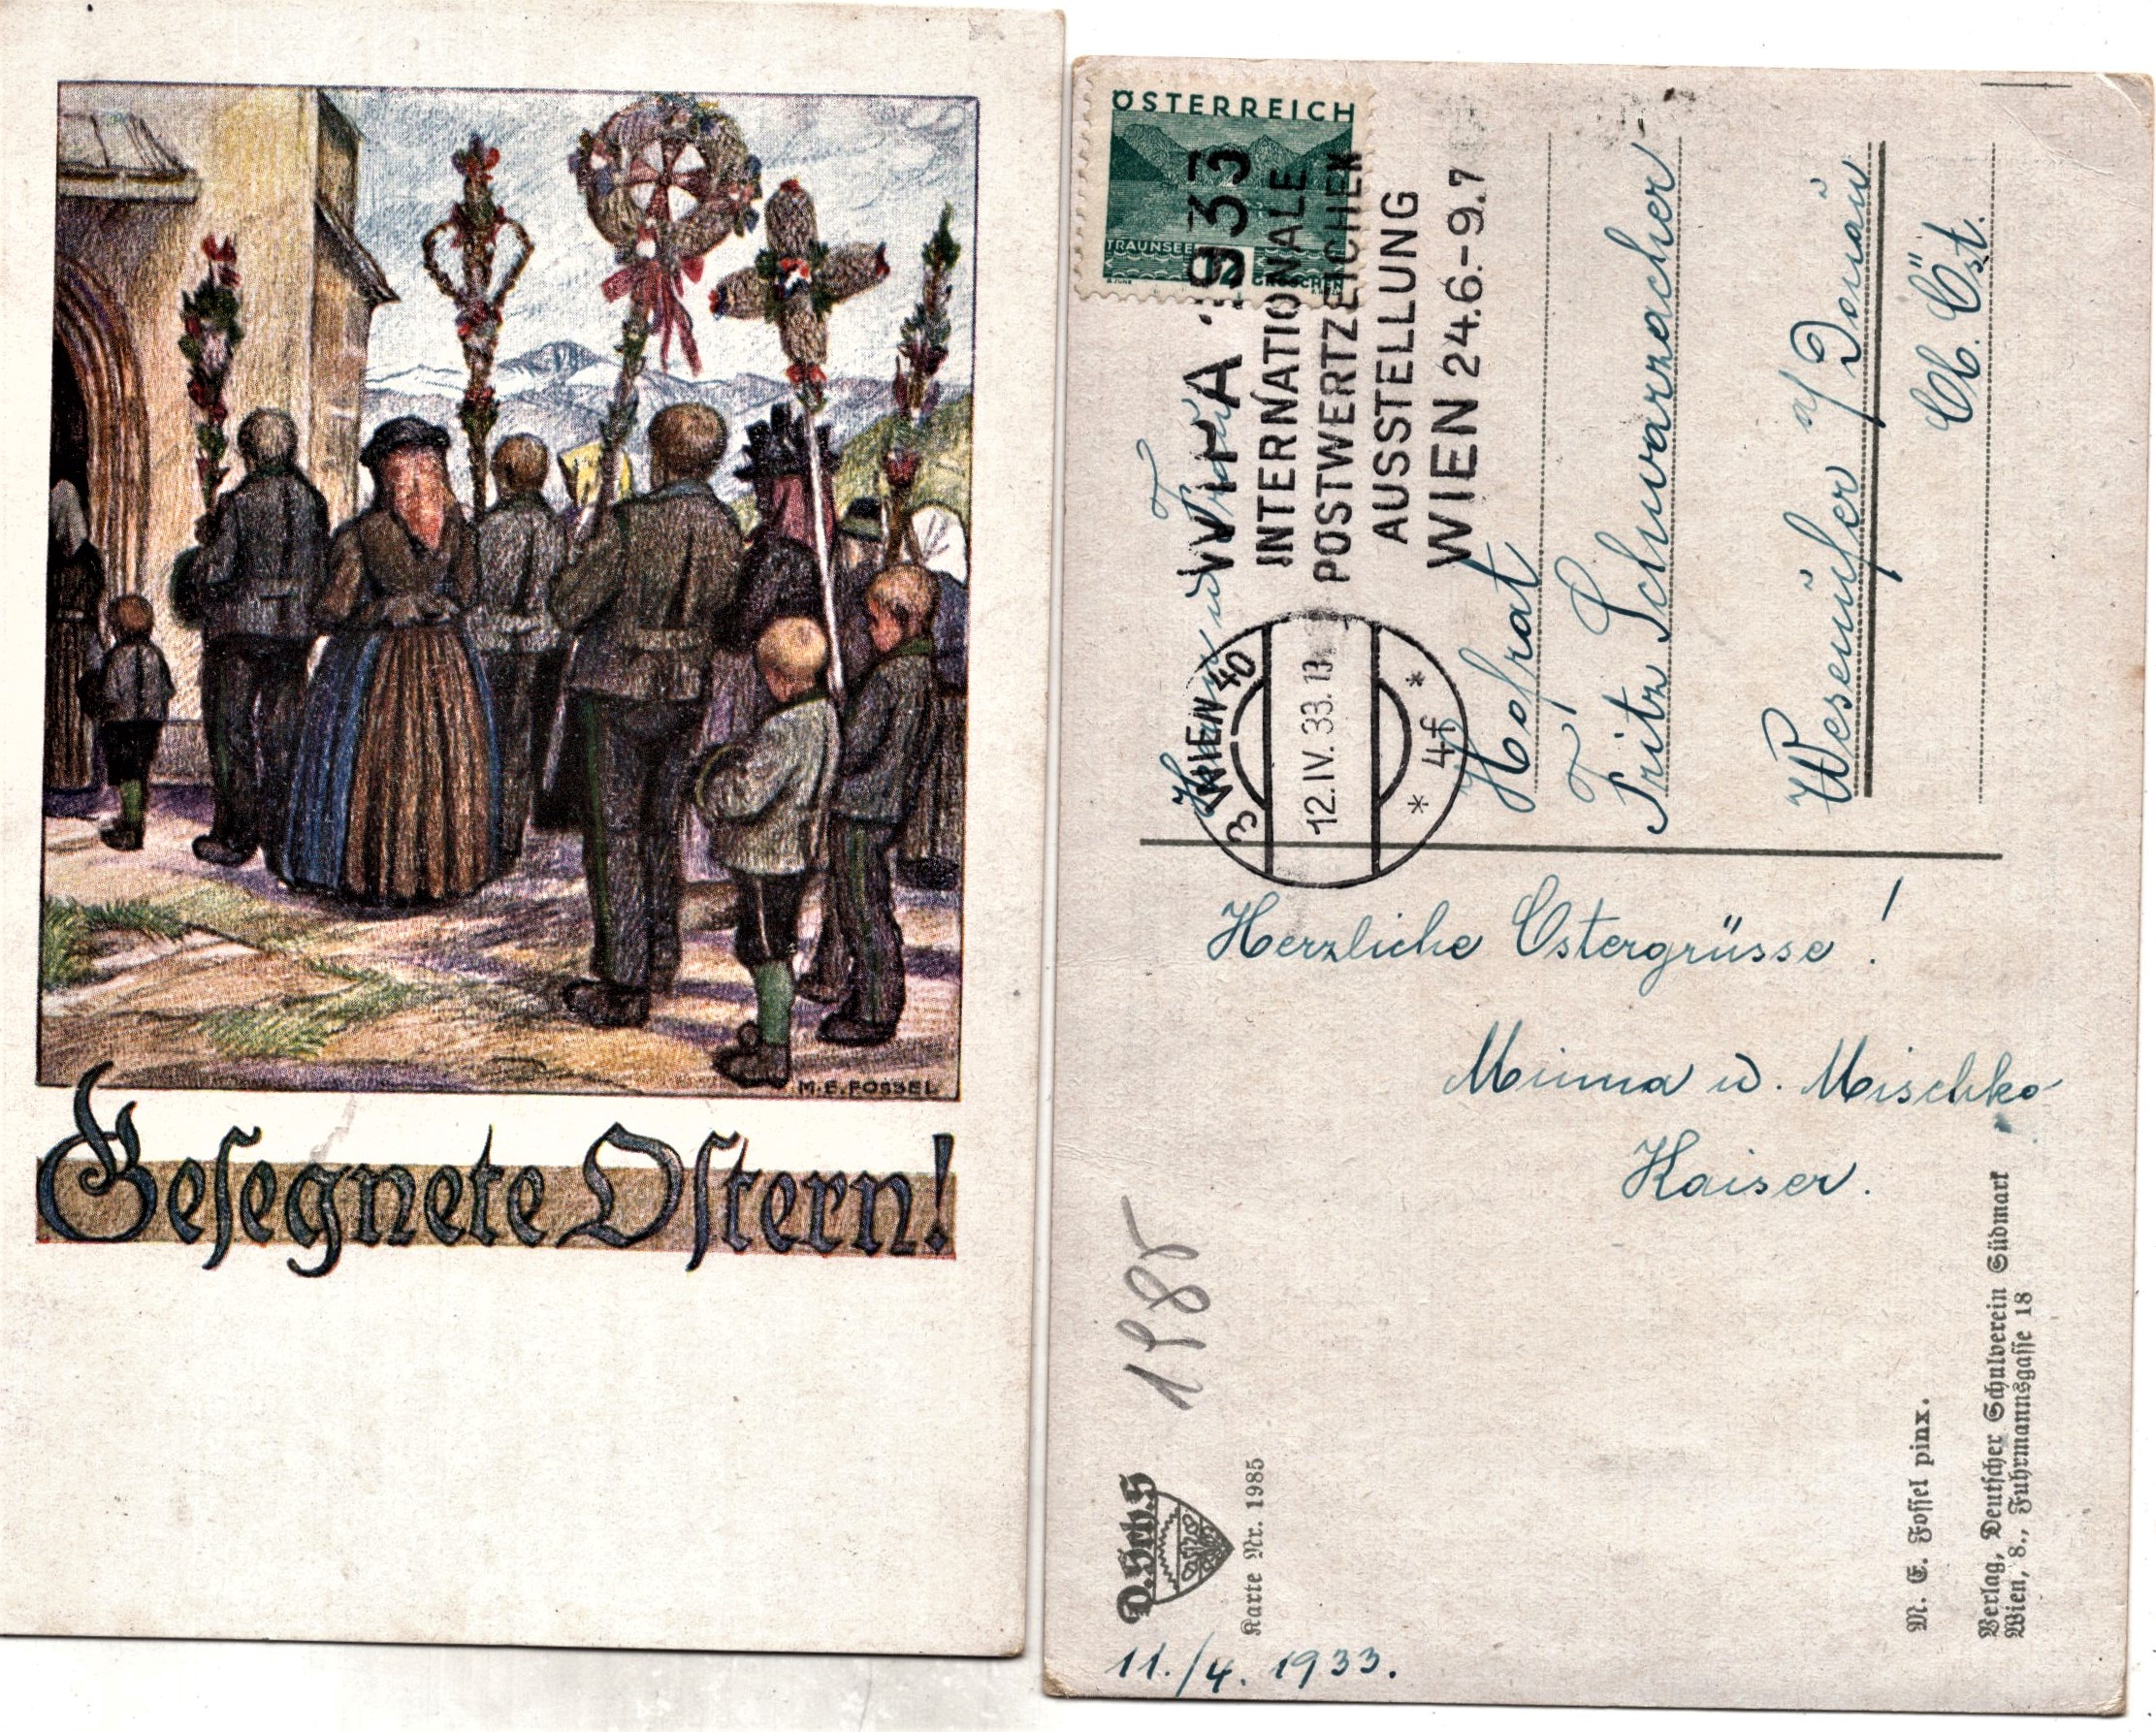 M.E. FOSSEL
Gesegnete Ostern!
ÖSTERREICH
TRAUNSEE
12 GROSCHEN
WIPA · 1933
INTERNATIONALE
POSTWERTZEICHEN
AUSSTELLUNG
WIEN 24.6.-9.7
3 WIEN 40
12.IV.33.13
* 4f *
Herrn u. Frau
Hofrat
Fritz Schwarzacher
Wesenufer a/ Donau
Ob. Öst.
Herzliche Ostergrüsse!
Minna u. Mischko
Kaiser.
1985
D.Sch.V.S
Karte Nr. 1985
11./4. 1933.
M. E. Fossel pinx.
Verlag, Deutscher Schulverein Südmark
Wien, 8., Fuhrmannsgasse 18